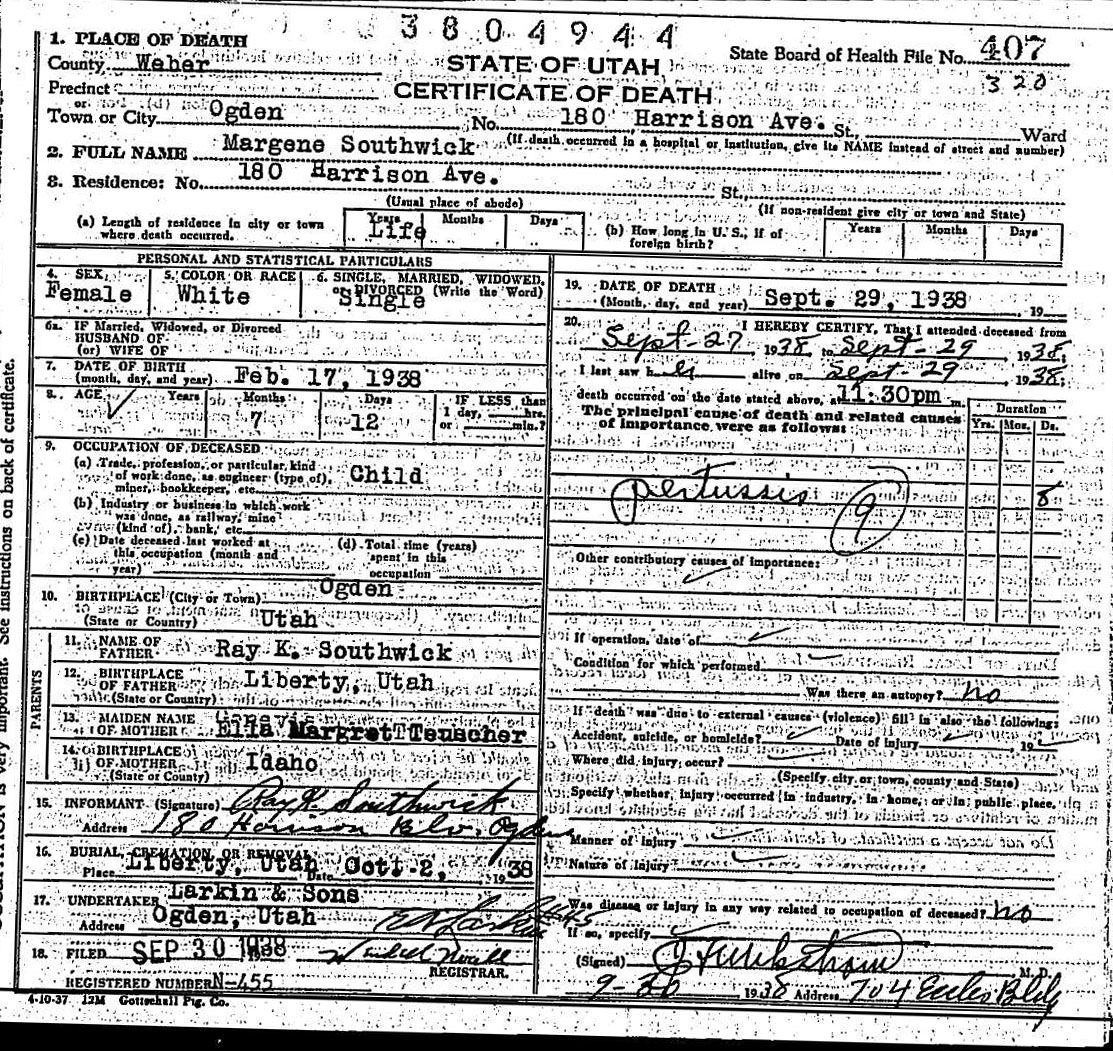 3804944
1. PLACE OF DEATH
County Weber
STATE OF UTAH
State Board of Health File No. 407
320
Precinct
CERTIFICATE OF DEATH
or
Town or City Ogden No. 180 Harrison Ave. St., Ward
(If death occurred in a hospital or institution, give its NAME instead of street and number)
2. FULL NAME Margene Southwick
3. Residence: No. 180 Harrison Ave. St.,
(Usual place of abode) (If non-resident give city or town and State)
(a) Length of residence in city or town where death occurred. Years Life Months Days
(b) How long in U. S., if of foreign birth? Years Months Days
PERSONAL AND STATISTICAL PARTICULARS
4. SEX Female
5. COLOR OR RACE White
6. SINGLE, MARRIED, WIDOWED, or DIVORCED (Write the Word) Single
6a. IF Married, Widowed, or Divorced
HUSBAND OF
(or) WIFE OF
7. DATE OF BIRTH
(month, day, and year) Feb. 17, 1938
8. AGE Years Months 7 Days 12 IF LESS than
1 day, hrs.
or min.?
9. OCCUPATION OF DECEASED
(a) Trade, profession, or particular kind
of work done, as engineer (type of),
miner, bookkeeper, etc. Child
(b) Industry or business in which work
was done, as railway, mine
(kind of), bank, etc.
(c) Date deceased last worked at
this occupation (month and
year)
(d) Total time (years)
spent in this
occupation
10. BIRTHPLACE (City or Town) Ogden
(State or Country) Utah
PARENTS
11. NAME OF
FATHER Ray K. Southwick
12. BIRTHPLACE
OF FATHER Liberty, Utah
(State or Country)
13. MAIDEN NAME
OF MOTHER Margret Teuscher
14. BIRTHPLACE
OF MOTHER Idaho
(State or County)
15. INFORMANT (Signature) Ray K. Southwick
Address 180 Harrison Blv. Ogden
16. BURIAL, CREMATION, OR REMOVAL
Place Liberty, Utah Date Oct. 2, 1938
17. UNDERTAKER Larkin & Sons
Address Ogden, Utah
18. FILED SEP 30 1938
REGISTRAR.
REGISTERED NUMBER N-455
4-10-37 12M Gottschall Ptg. Co.
19. DATE OF DEATH
(Month, day, and year) Sept. 29, 1938 19
20. I HEREBY CERTIFY, That I attended deceased from
Sept-27 1938 to Sept-29, 1938;
I last saw h er alive on Sept-29 1938;
death occurred on the date stated above, at 11:30pm m.
The principal cause of death and related causes
of importance were as follows:
Duration
Yrs. Mos. Ds.
pertussis 9 8
Other contributory causes of importance:
If operation, date of
Condition for which performed
Was there an autopsy? no
If death was due to external causes (violence) fill in also the following:
Accident, suicide, or homicide? Date of injury , 19
Where did injury occur?
(Specify city or town, county and State)
Specify whether injury occurred in industry, in home, or in public place.
Manner of injury
Nature of injury
Was disease or injury in any way related to occupation of deceased? no
If so, specify
(Signed) M. D.
9-30 1938 Address 704 Eccles Bldg
See instructions on back of certificate.